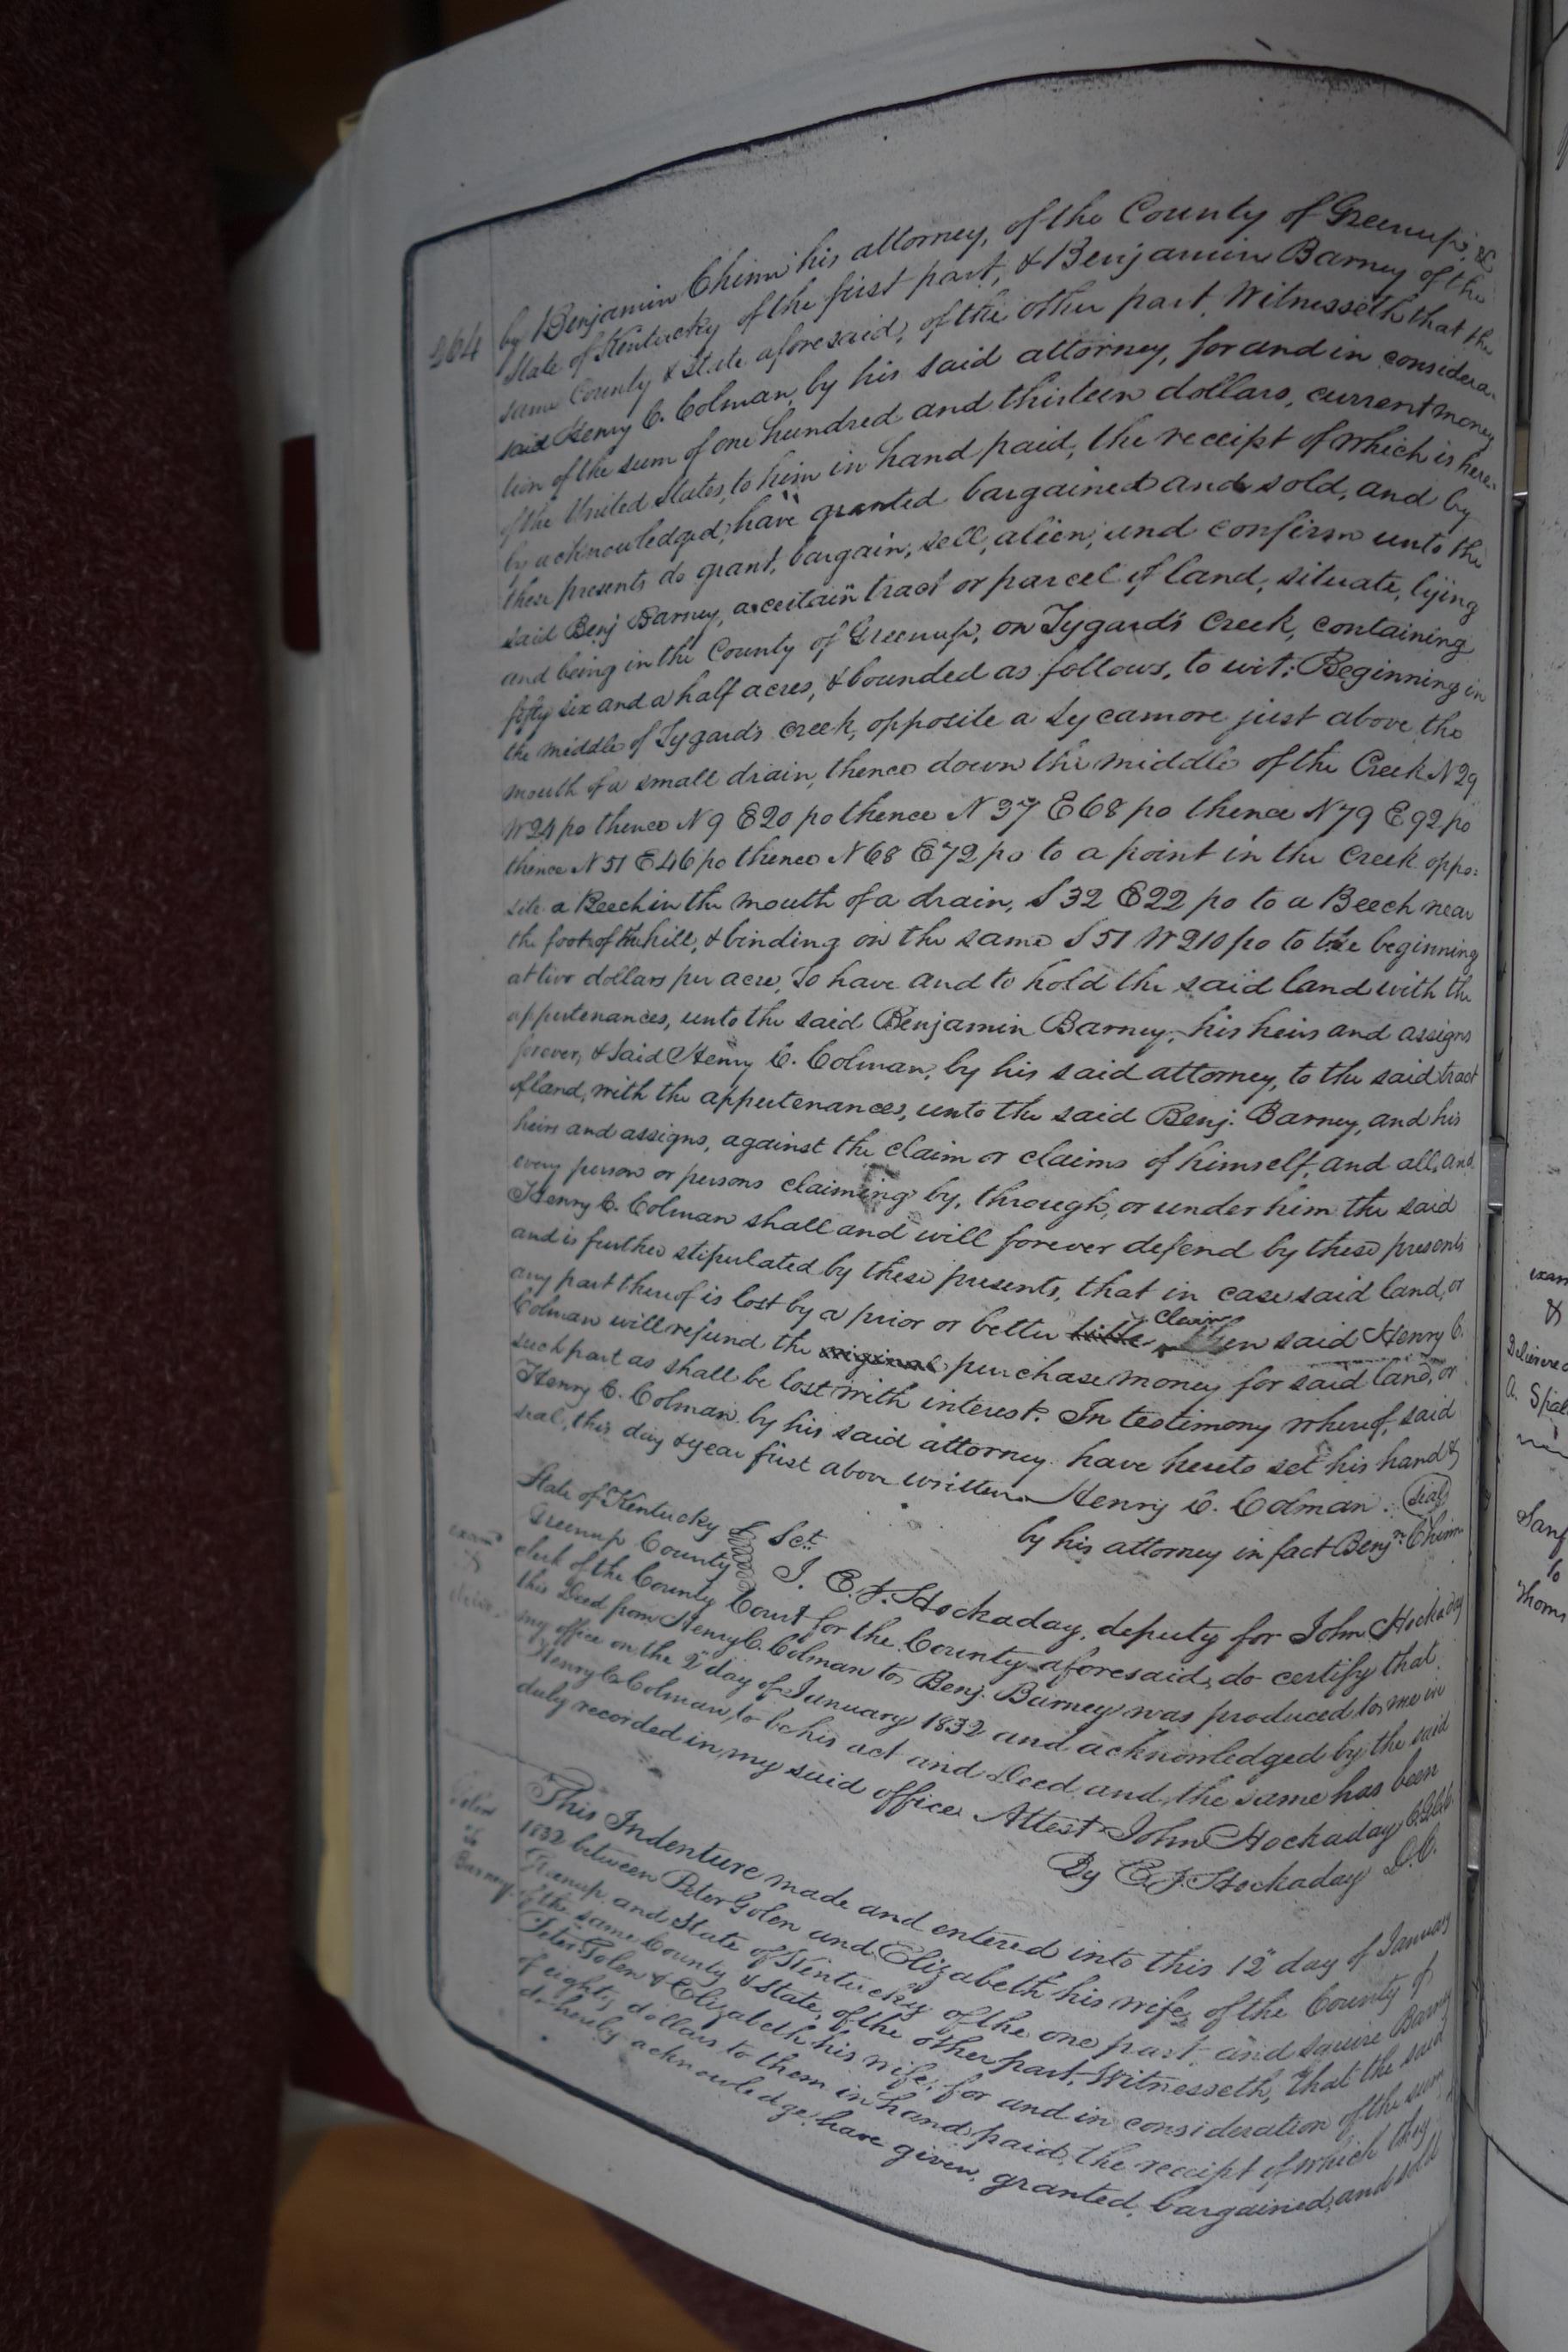 264
by Benjamin Chinn his attorney, of the County of Greenup, &
State of Kentucky of the first part, & Benjamin Barney of the
same County & State aforesaid, of the other part, Witnesseth that the
said Henry C. Colman by his said attorney, for and in considera-
tion of the sum of one hundred and thirteen dollars, current money
of the United States, to him in hand paid, the receipt of which is here-
by acknowledged, have granted bargained and sold, and by
these presents do grant, bargain, sell, alien, and confirm unto the
said Benj Barney, a certain tract or parcel of land, situate, lying
and being in the County of Greenup, on Tygard's Creek, containing
fifty six and a half acres, & bounded as follows, to wit: Beginning in
the middle of Tygard's creek, opposite a Sycamore just above the
mouth of a small drain, thence down the middle of the Creek N 29
W 24 po thence N 9 E 20 po thence N 37 E 68 po thence N 79 E 92 po
thence N 51 E 46 po thence N 68 E 72 po to a point in the creek oppo=
site a Beech in the mouth of a drain, S 32 E 22 po to a Beech near
the foot of the hill, & binding on the same S 51 W 210 po to the beginning
at two dollars per acre, To have and to hold the said land with the
appertenances, unto the said Benjamin Barney, his heirs and assigns
forever, & said Henry C. Colman, by his said attorney, to the said tract
of land, with the appertenances, unto the said Benj. Barney, and his
heirs and assigns, against the claim or claims of himself, and all, and
every person or persons claiming by, through, or under him the said
Henry C. Colman shall and will forever defend by these presents
and is further stipulated by these presents, that in case said land, or
any part thereof is lost by a prior or better title claim then said Henry C.
Colman will refund the original purchase money for said land, or
such part as shall be lost with interest. In testimony whereof, said
Henry C. Colman by his said attorney have hereto set his hand &
seal, this day & year first above written. Henry C. Colman. Seal
by his attorney in fact Benjn Chinn
State of Kentucky
Greenup County Sct.
I, E. J. Hockaday, deputy for John Hockaday
clerk of the County Court for the County aforesaid, do certify that
this Deed from Henry C. Colman to Benj. Barney was produced to me in
my office on the 2" day of January 1832 and acknowledged by the said
Henry C. Colman, to be his act and Deed and the same has been
duly recorded in my said office. Attest John Hockaday
By E J Hockaday D.C.
Golen
to
Barney
This Indenture made and entered into this 12" day of January
1832 between Peter Golen and Elizabeth his wife, of the County of
Greenup, and State of Kentucky of the one part, and Squire Barney
of the same County & State, of the other part, Witnesseth, that the said
Peter Golen & Elizabeth his wife, for and in consideration of the sum
of eighty dollars to them in hand paid, the receipt of which they
do hereby acknowledge, have given, granted, bargained, and sold